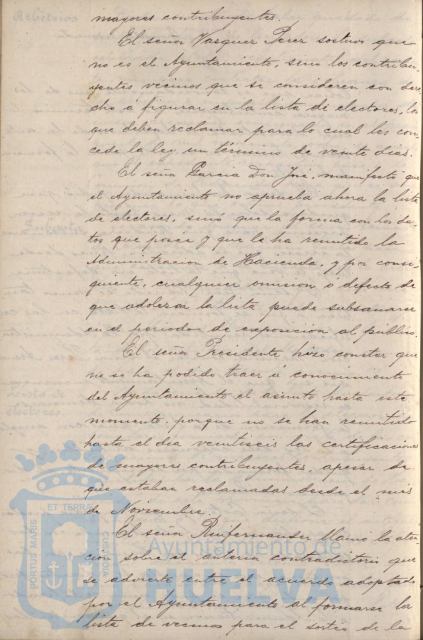 mayores contribuyentes.
El señor Vasquez Perez sostuvo que
no es el Ayuntamiento, sino los contribu-
yentes vecinos que se consideren con dere-
cho á figurar en la lista de electores, los
que deben reclamar para lo cual les con-
cede la ley un término de veinte dias.
El señor Garcia Don José, manifestó que
el Ayuntamiento no aprueba ahora la lista
de electores, sinó que la forma con los da-
tos que posee y que le ha remitido la
Administracion de Hacienda, y por consi-
guiente, cualquier omision ó defecto de
que adolezca la lista puede subsanarse
en el periodo de exposicion al público.
El señor Presidente hizo constar que
no se ha podido traer á conocimiento
del Ayuntamiento el asunto hasta este
momento, porque no se han remitido
hasta el dia veintiseis las certificaciones
de mayores contribuyentes, apesar de
que estaban reclamadas desde el mes
de Noviembre.
El señor Ruifernandez llamó la aten-
cion sobre el criterio contradictorio que
se advierte entre el acuerdo adoptado
por el Ayuntamiento al formarse la
lista de vecinos para el sorteo de la
Ayuntamiento de
HUELVA
PORTUS MARIS ET TERRÆ CUSTODIA